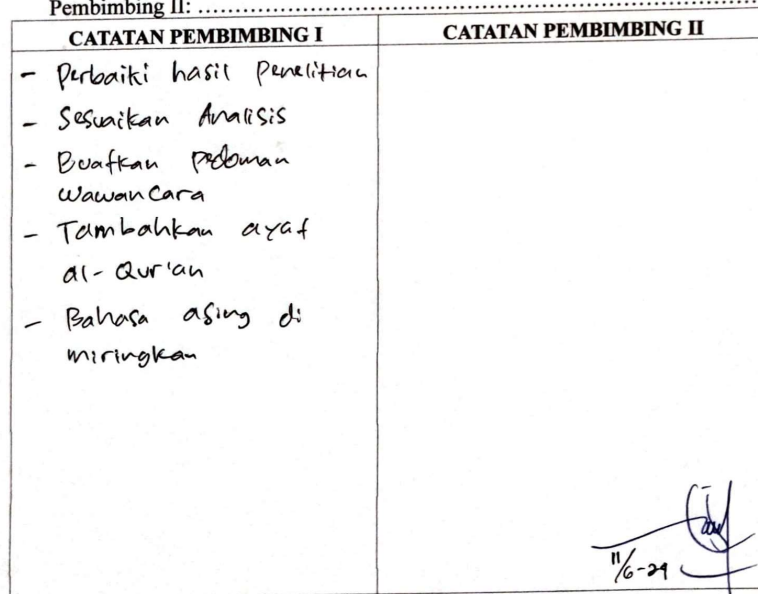 Pembimbing II: ..........................................................................
CATATAN PEMBIMBING I
CATATAN PEMBIMBING II
- Perbaiki hasil Penelitian
- Sesuaikan Analisis
- Buatkan pedoman
wawancara
- Tambahkan ayat
al-Qur'an
- Bahasa asing di
miringkan
11/6-24